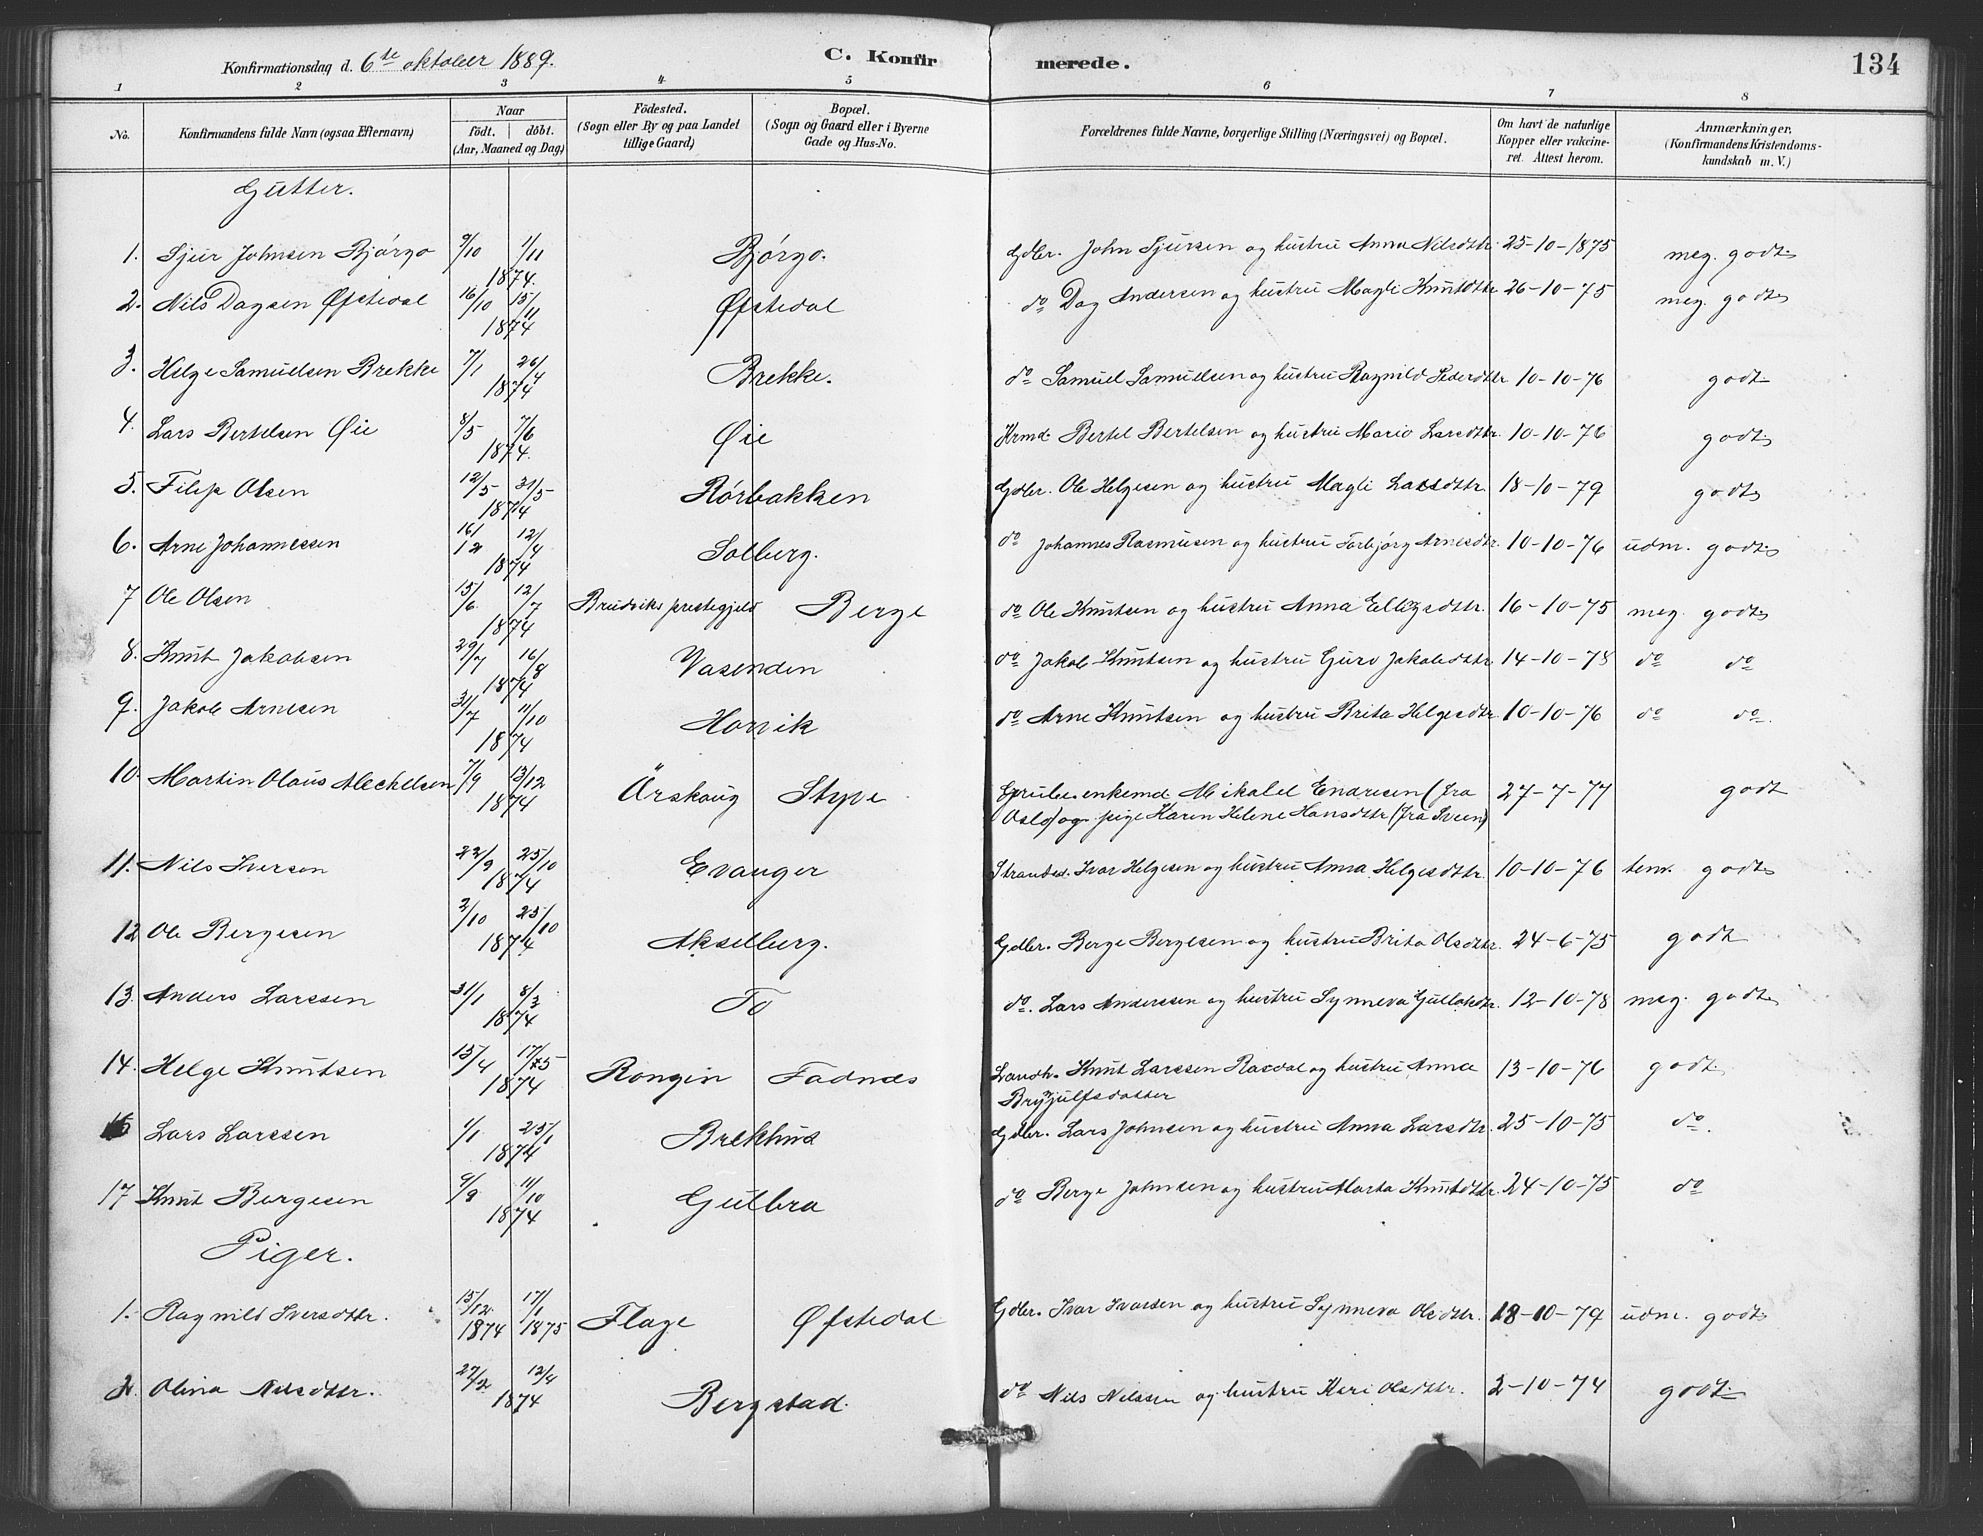 Konfirmationsdag d. 6te oktober 1889. C. Konfirmerede. 134
1 2 3 4 5 6 7 8
No. Konfirmandens fulde Navn (ogsaa Efternavn) Naar födt. döbt. (Aar, Maaned og Dag) Födested. (Sogn eller By og paa Landet tillige Gaard) Bopæl. (Sogn og Gaard eller i Byerne Gade og Hus-No. Forældrenes fulde Navne, borgerlige Stilling (Næringsvei) og Bopæl. Om havt de naturlige Kopper eller vakcineret. Attest herom. Anmærkninger. (Konfirmandens Kristendomskundskab m. V.)
Gutter.
1. Sjur Johnsen Bjørgo 9/10 1/11 1874. Bjørgo. Gdbr. John Sjursen og hustru Anna Nilsdttr. 25-10-1875 meg. godt
2. Nils Dagsen Øfstedal 16/10 15/11 1874 Øfstedal do Dag Andersen og hustru Magli Knutsdttr 26-10-75 meg. godt
3. Helge Samuelsen Brekke 7/1 26/4 1874 Brekke. do Samuel Samuelsen og hustru Ragnild Pedersdttr 10-10-76 godt
4. Lars Bertelsen Øie 8/5 7/6 1874. Øie Hrmd Bertel Bertelsen og hustru Mario Larsdttr. 10-10-76 godt
5. Filip Olsen 12/5 31/5 1874 Rørbakken Gdbr. Ole Helgesen og hustru Magli Larsdttr. 18-10-79 godt
6. Arne Johannessen 16/12 12/4 1874 Solberg. do Johannes Rasmusen og hustru Torbjørg Arnesdttr. 10-10-76 udm. godt
7 Ole Olsen 15/6 12/7 1874 Brudviks prestegjeld Berge do Ole Knutsen og hustru Anna Ellingsdttr. 16-10-75 meg. godt
8. Knut Jakobsen 29/7 16/8 1874 Vasenden do Jakob Knutsen og hustru Guro Jakobsdttr. 14-10-78 do do
9. Jakob Arnesen 31/7 11/10 1874 Horvik do Arne Knutsen og hustru Brita Helgesdttr. 10-10-76 do do.
10. Martin Olaus Mechelsen 7/9 13/12 1874 Ørskoug Styve Grube. enkemd. Mikalel Endresen (fra 27-7-77 godt
Oslo) og pige Karen Helene Hansdttr (fra Sveen)
11. Nils Iversen 22/9 25/10 1874 Evanger Strandsd. Ivar Helgesen og hustru Anna Helgesdttr. 10-10-76 tem. godt
12 Ole Bergesen 2/10 25/10 1874 Akselberg. Gdbr. Berge Bergesen og hustru Brita Olsdttr. 24-6-75 godt
13. Anders Larssen 31/1 8/3 1874 Fo do. Lars Anderssen og hustru Synneva Gullaksdtr. 12-10-78 meg. godt
14. Helge Knutsen 15/4 17/5 1874 Rongin Fadnes Landh. Knut Larssen Rasdal og hustru Anna 13-10-76 godt
Brynjulfsdatter
Lars Larssen 1/1 25/1 1874 Brekhus Gdbr. Lars Johnsen og hustru Anna Larsdtr. 25-10-75 do.
17 Knut Bergesen 9/9 11/10 1874 Gulbra do Berge Johnsen og hustru Marta Knutsdttr. 24-10-75 do
Piger.
1. Ragnild Iversdttr. 15/12 1874 17/1 1875 Flage Øfstedal Gdbr. Ivar Ivarsen og hustru Synneva Olsdttr. 18-10-79 udm. godt
2. Olina Nilsdttr. 27/2 12/4 1874 Bergstad. do Nils Nilssen og hustru Kari Olsdttr. 2-10-74 godt